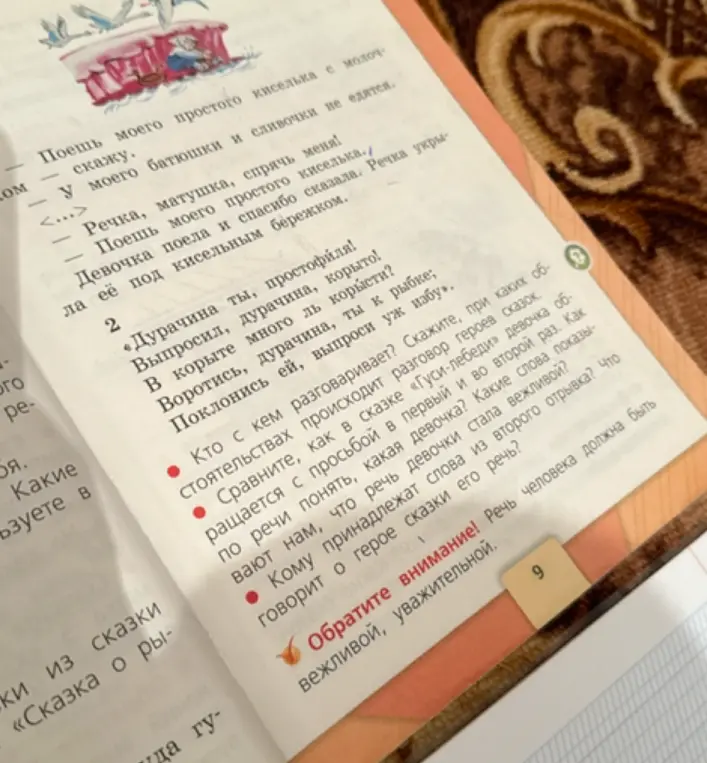 — Поешь моего простого киселька с молоч-
ком — скажу.
— У моего батюшки и сливочки не едятся.
<...>
— Речка, матушка, спрячь меня!
— Поешь моего простого киселька.
Девочка поела и спасибо сказала. Речка укры-
ла её под кисельным бережком.
2
«Дурачина ты, простофи́ля!
Выпросил, дурачина, корыто!
В корыте много ль коры́сти?
Воротись, дурачина, ты к рыбке;
Поклонись ей, выпроси уж избу».
• Кто с кем разговаривает? Скажите, при каких об-
стоятельствах происходит разговор героев сказок.
• Сравните, как в сказке «Гуси-лебеди» девочка об-
ращается с просьбой в первый и во второй раз. Как
по речи понять, какая девочка? Какие слова показы-
вают нам, что речь девочки стала вежливой?
• Кому принадлежат слова из второго отрывка? Что
говорит о герое сказки его речь?
Обратите внимание! Речь человека должна быть
вежливой, уважительной.
9
ого
ре-
Какие
ьзуете в
ки из сказки
«Сказка о ры-
уда гу-